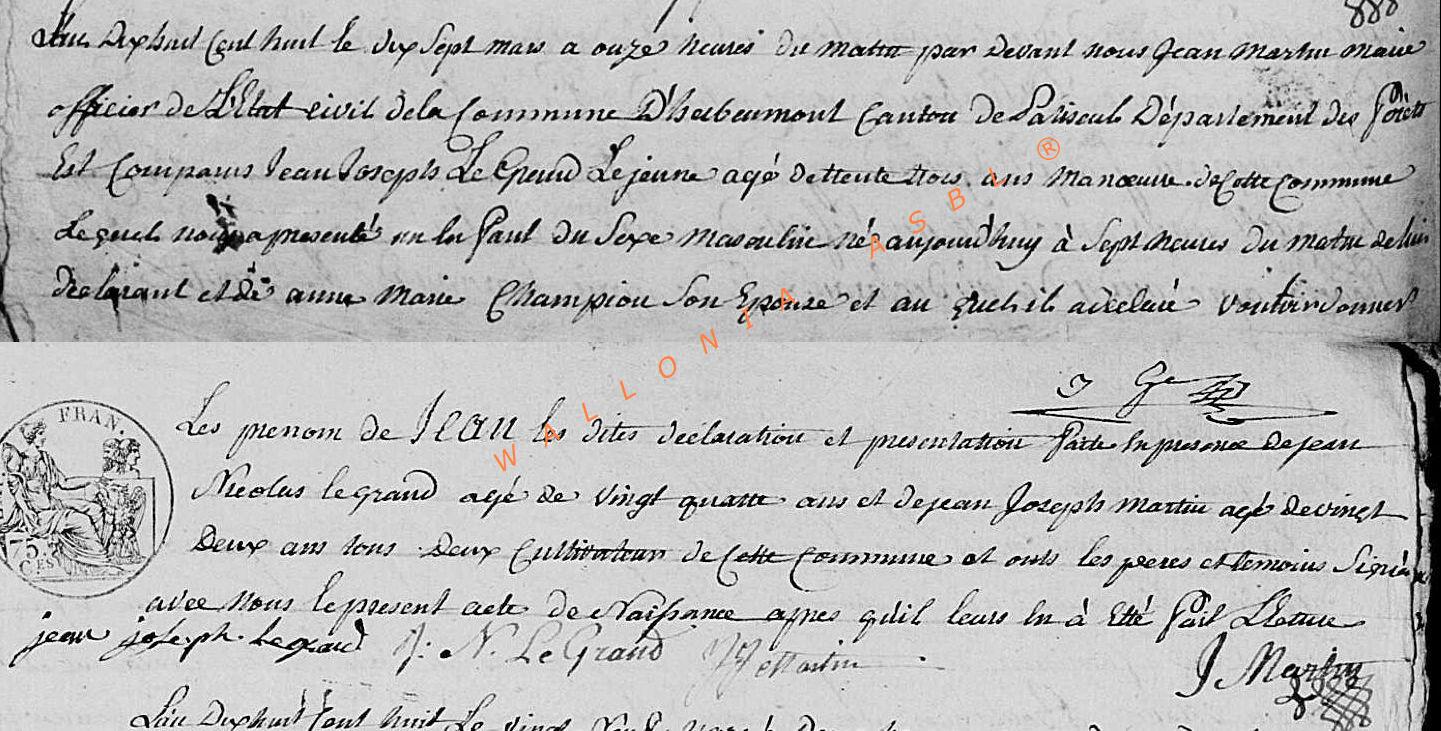 888
L'an Dixhuit Cent huit le dix Sept mars a onze heures du matin par devant nous Jean Martin maire
officier de L'Etat civil dela Commune D'herbeumont Canton de Paliseul Département des Forêts
Est Comparus Jean Joseph Le Grand Le jeune agé de trente trois ans Manœuvre de Cette Commune
Lequel nous a presenté un Enfant du Sexe masculin né aujourd'huy à Sept heures du matin de lui
declarant et de anne Marie Champion Son Epouse et au quel il a declaré vouloir donner
Les prenom de Jean les dites declaration et presentation faite En presence de jean
Nicolas legrand agé de vingt quatre ans et de jean Joseph Martin agé de vingt
Deux ans tous Deux Cultivateur de Cette Commune et onts les peres et temoins Signé
avec Nous le present acte de Naissance apres qu'il leurs En à Etté fait Lecture
jean joseph legrand J: N. Le Grand JJ Martin J Martin
L'an Dixhuit Cent huit Le vingt
FRAN.
75.
WALLONIA ASBL ®